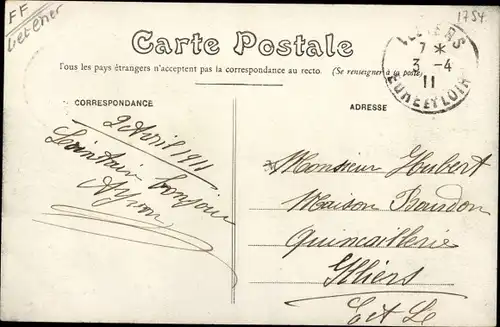 FF
1754
Carte Postale
Tous les pays étrangers n'acceptent pas la correspondance au recto. (Se renseigner à la poste)
ILLIERS
7 *
3 -4
11
EURE ET LOIR
CORRESPONDANCE
ADRESSE
2 Avril 1911
Lointain bonjour
Monsieur Hubert
Maison Bourdon
Quincaillerie
Illiers
E et L